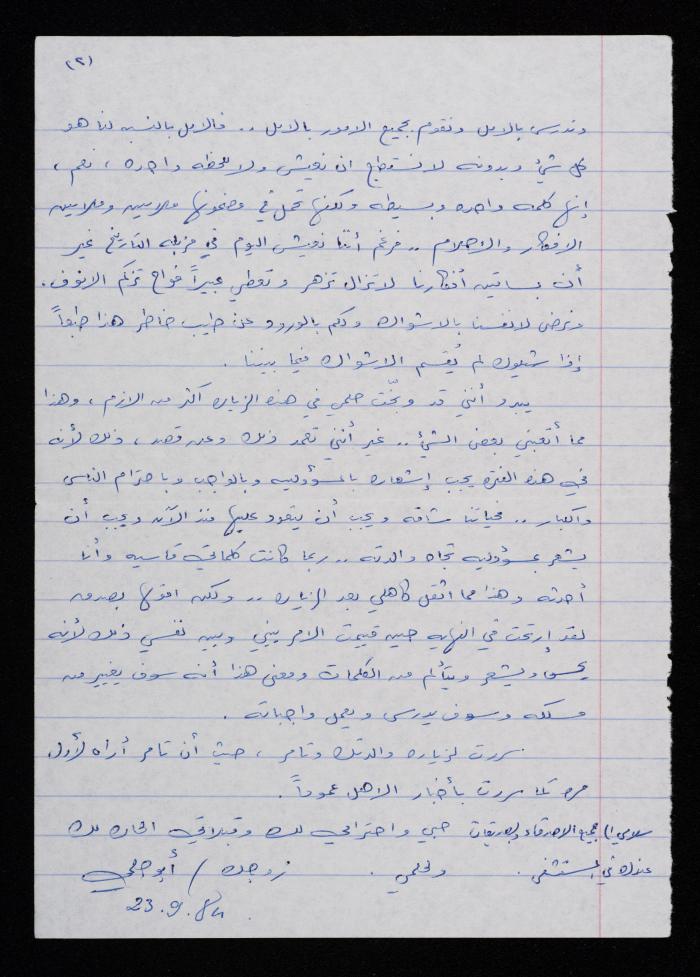 (٢)
وندرس بالامل ونقوم بجميع الامور بالامل .. فالامل بالنسبه لنا هو
كل شيئ وبدونه لا نستطيع ان نعيش ولا للحظه واحده ، نعم ،
إنها كلمه واحده وبسيطه ولكنها تحمل في مضمونها ملايين وملايين
الافكار والاحلام .. فرغم أننا نعيش اليوم في مزبلة التاريخ غير
أن بساتين أفكارنا لا تزال تزهر وتعطي عبيراً فواح تزكم الانوف .
ونرضى لانفسنا بالاشواك ولكم بالورود عن طيب خاطر هذا طبعاً
إذا شيلوك لم يُقسم الاشواك فيما بيننا .
يبدو أنني قد وبّخت حلمي في هذه الزياره اكثر من الازم ، وهذا
مما أتعبني بعض الشيئ .. غير أنني تعمد ذلك وعن قصد ، ذلك لأنه
في هذه الفتره يجب إشعاره بالمسؤوليه وبالواجب وباحترام الناس
والكبار .. فحياتنا شاقه ويجب أن يتعود عليها منذ الآن ويجب أن
يشعر بمسؤوليه تجاه والدته .. ربما كانت كلماتي قاسيه وأنا
أحدثه وهذا مما اثقل كاهلي بعد الزياره .. ولكن اقولها بصدق
لقد إرتحت في النهايه حين قيمت الامر بيني وبين نفسي ذلك لأنه
يحس ويشعر ويتألم من الكلمات ومعنى هذا أنه سوف يغيير من
مسلكه وسوف يدرس ويعمل واجباته .
سررت لزياره والدتك وتامر ، حيث أن تامر أراه لأول
مره كما سررت بأخبار الاهل عموماً .
سلامي الى جميع الاصدقاء والصديقات حبي واحترامي لك وقبلاتي الحاره لك
عندك في المستشفى . ولحلمي . زوجك / أبو حلمي
23.9.84